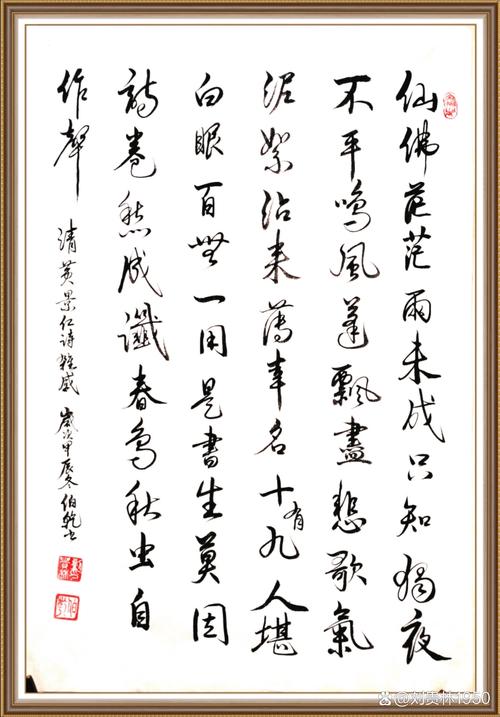 仙佛茫茫兩未成只知獨夜
不平鳴風蓬飄盡悲歌氣
泥絮沾來薄幸名十有九人堪
白眼百無一用是書生莫因
詩卷愁成讖春鳥秋虫自
作聲
清黄景仁诗雜感 歲次甲辰冬伯乾书
刘贵林1950